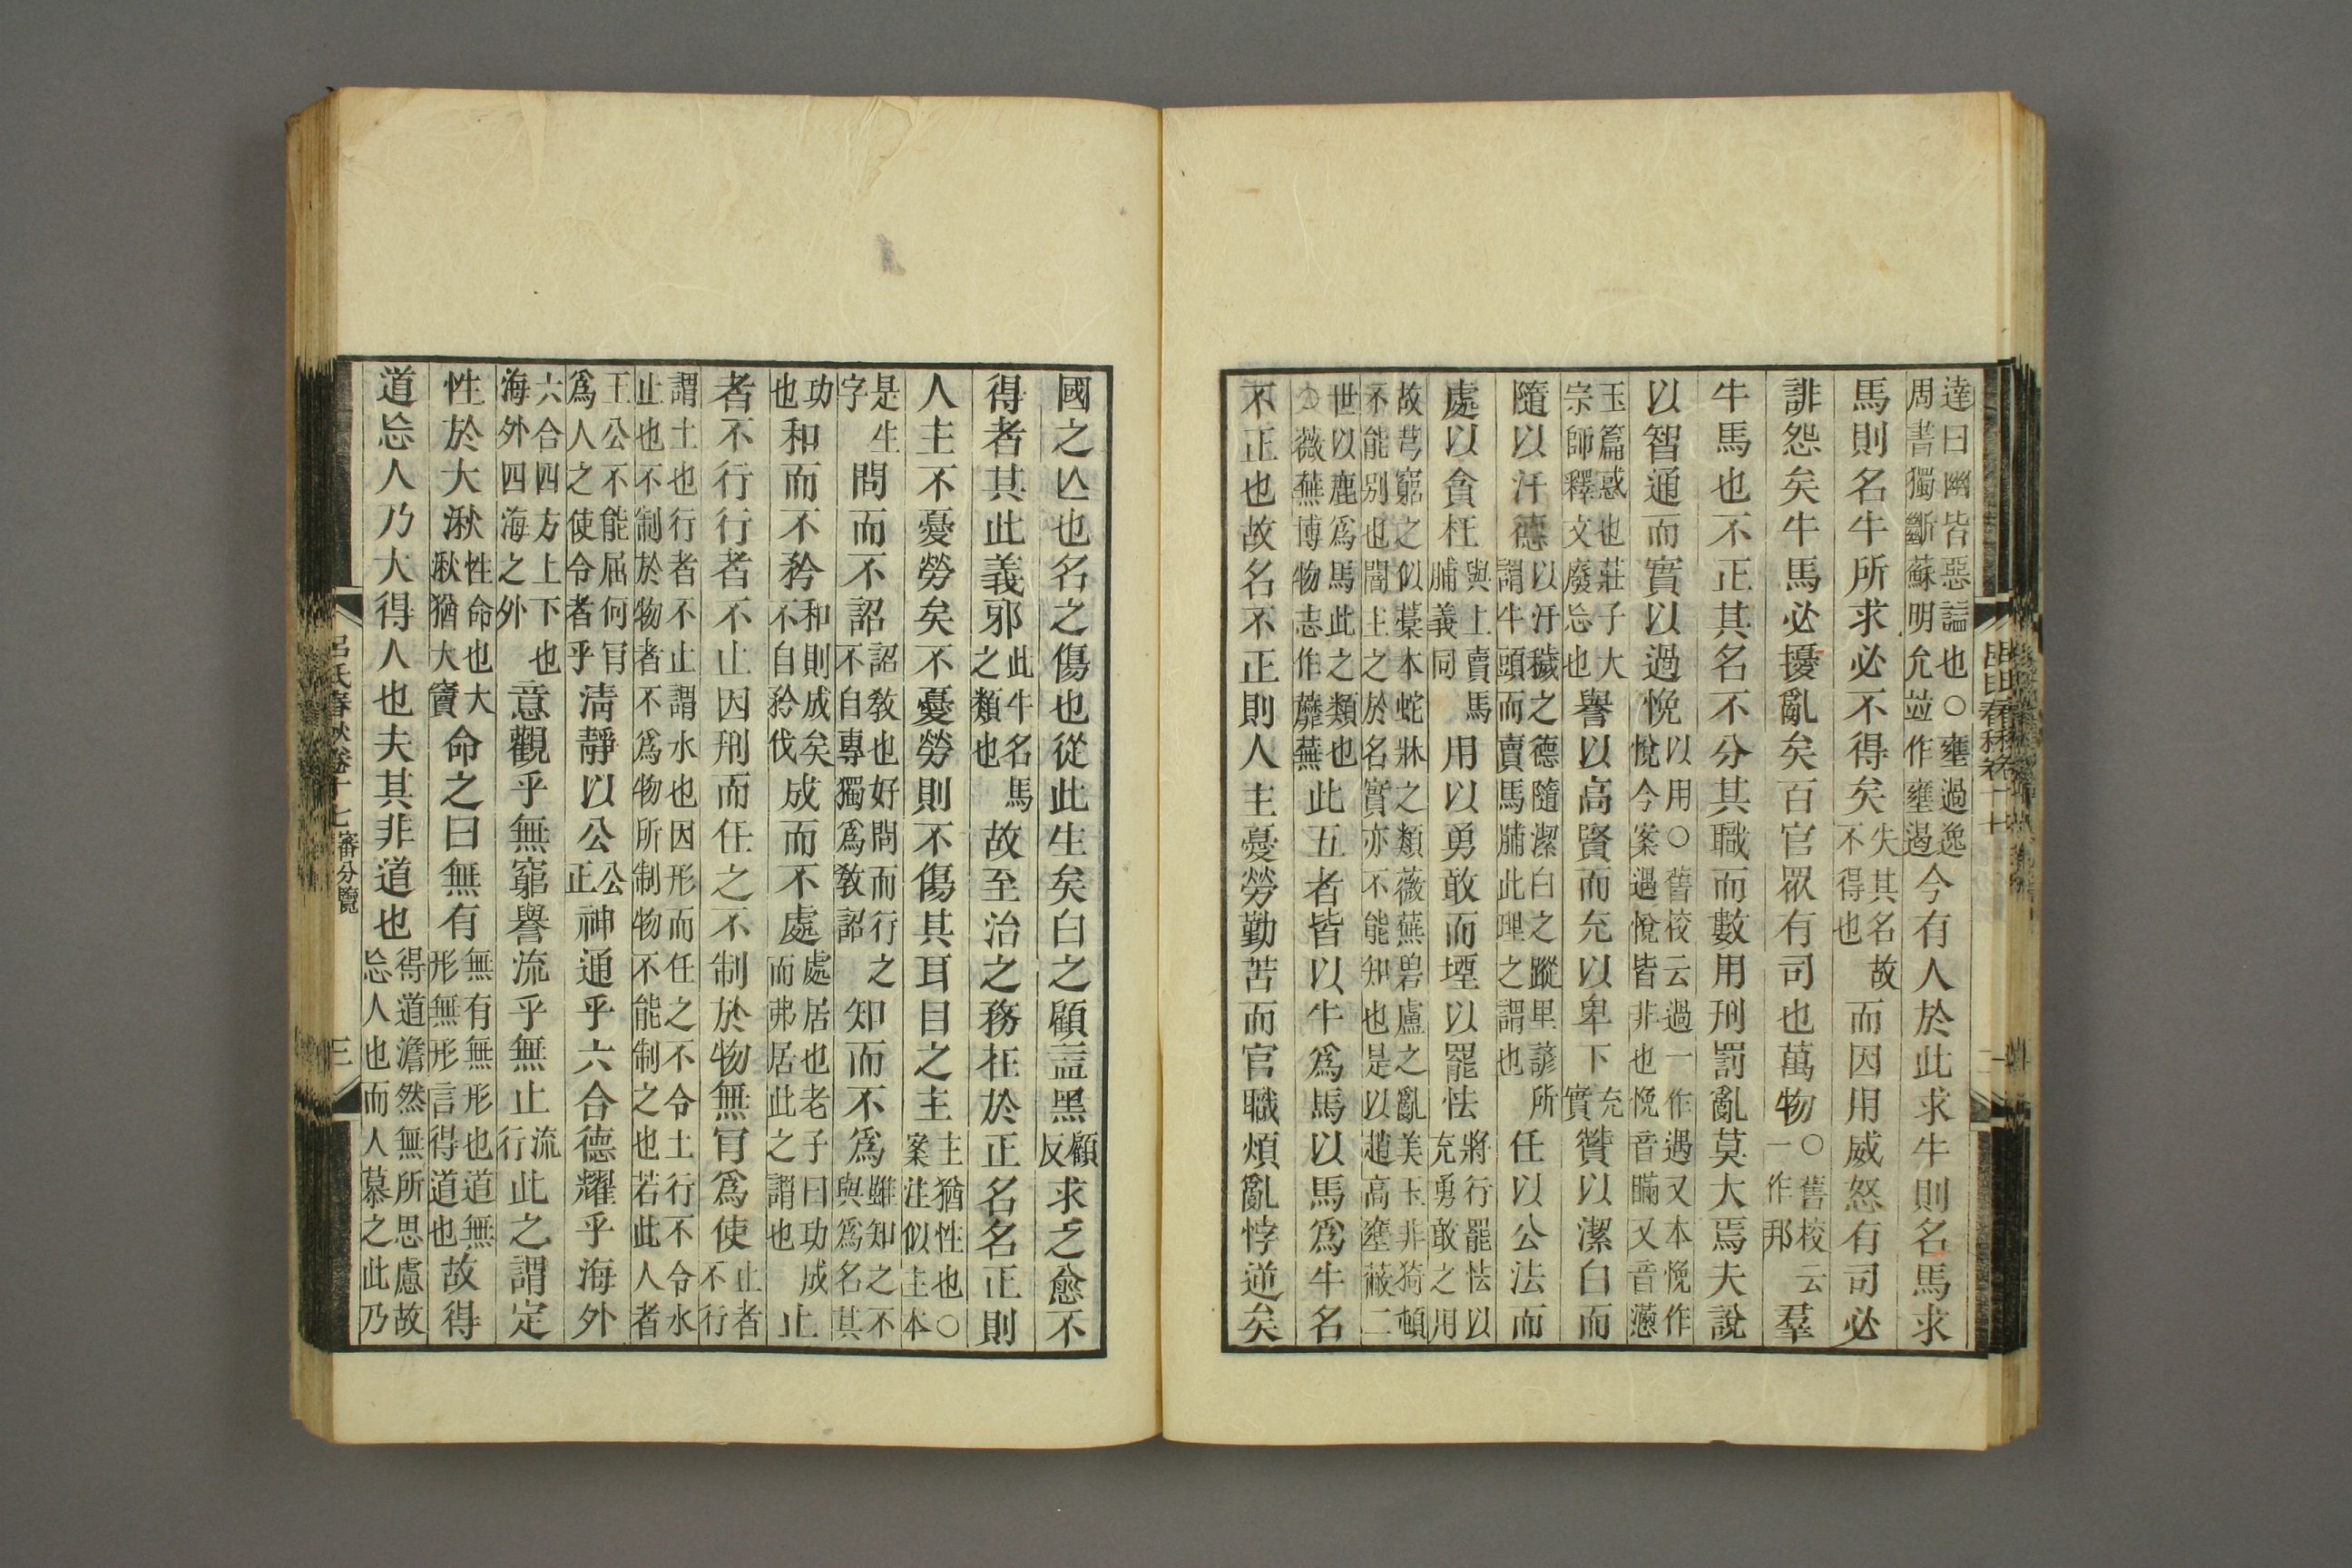 達曰幽皆惡諡也○壅過逸周書獨斷蘇明允竝作壅遏今有人於此求牛則名馬求
馬則名牛所求必不得矣失其名故不得也而因用威怒有司必
誹怨矣牛馬必擾亂矣百官眾有司也萬物○舊校云一作邦羣
牛馬也不正其名不分其職而數用刑罰亂莫大焉夫說
以智通而實以過悗以用○舊校云過一作遇又本悗作悅今案遇悅皆非也悗音瞞又音懣
玉篇惑也莊子大宗師釋文廢忘也譽以高賢而充以卑下充實贊以潔白而
隨以汙德以汙穢之德隨潔白之蹤里諺所謂牛頭而賣馬脯此理之謂也任以公法而
處以貪枉與上賣馬脯義同用以勇敢而堙以罷怯將行罷怯以充勇敢之用
故芎窮之似藁本蛇牀之類薇蕪碧盧之亂美玉非猗頓不能別也闇主之於名實亦不能知也是以趙高壅蔽二
世以鹿爲馬此之類也○薇蕪博物志作蘼蕪此五者皆以牛爲馬以馬爲牛名
不正也故名不正則人主憂勞勤苦而官職煩亂悖逆矣
國之亾也名之傷也從此生矣白之顧益黑顧反求之愈不
得者其此義邪此牛名馬之類也故至治之務在於正名名正則
人主不憂勞矣不憂勞則不傷其耳目之主主猶性也○案注似主本
是生字問而不詔詔教也好問而行之不自專獨爲教詔知而不爲雖知之不與爲名其
功也和而不矜和則成矣不自矜伐成而不處處居也老子曰功成而弗居此之謂也止
者不行行者不止因刑而任之不制於物無肎爲使止者不行
謂土也行者不止謂水也因形而任之不令土行不令水止也不制於物者不爲物所制制物不能制之也若此人者
王公不能屈何肎爲人之使令者乎清靜以公公正神通乎六合德耀乎海外
六合四方上下也海外四海之外意觀乎無窮譽流乎無止流行此之謂定
性於大湫性命也大湫猶大竇命之曰無有無有無形也道無形無形言得道也故得
道忘人乃大得人也夫其非道也得道澹然無所思慮故忘人也而人慕之此乃
呂氏春秋卷十七 審分覽 三